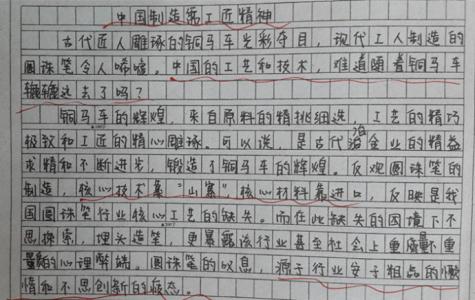 中国制造需工匠精神
古代匠人雕琢的铜马车光彩夺目，现代工人制造的
圆珠笔令人唏嘘。中国的工艺和技术，难道随着铜马车
辘辘远去了吗？
铜马车的辉煌，来自原料的精挑细选，工艺的精巧
极致和工匠的精心雕琢。可以说，是古代冶金业的精益
求精和不断进步，锻造了铜马车的辉煌。反观圆珠笔的
制造，核心技术靠“山寨”，核心材料靠进口，反映是我
国圆珠笔行业核心工艺的缺失。而在此缺失的困境下不
思探索，埋头造笔，更暴露该行业甚至社会上重量不重
质的心理弊端。圆珠笔的叹息，源于行业安于粗品的
情和不思创新的疲态。